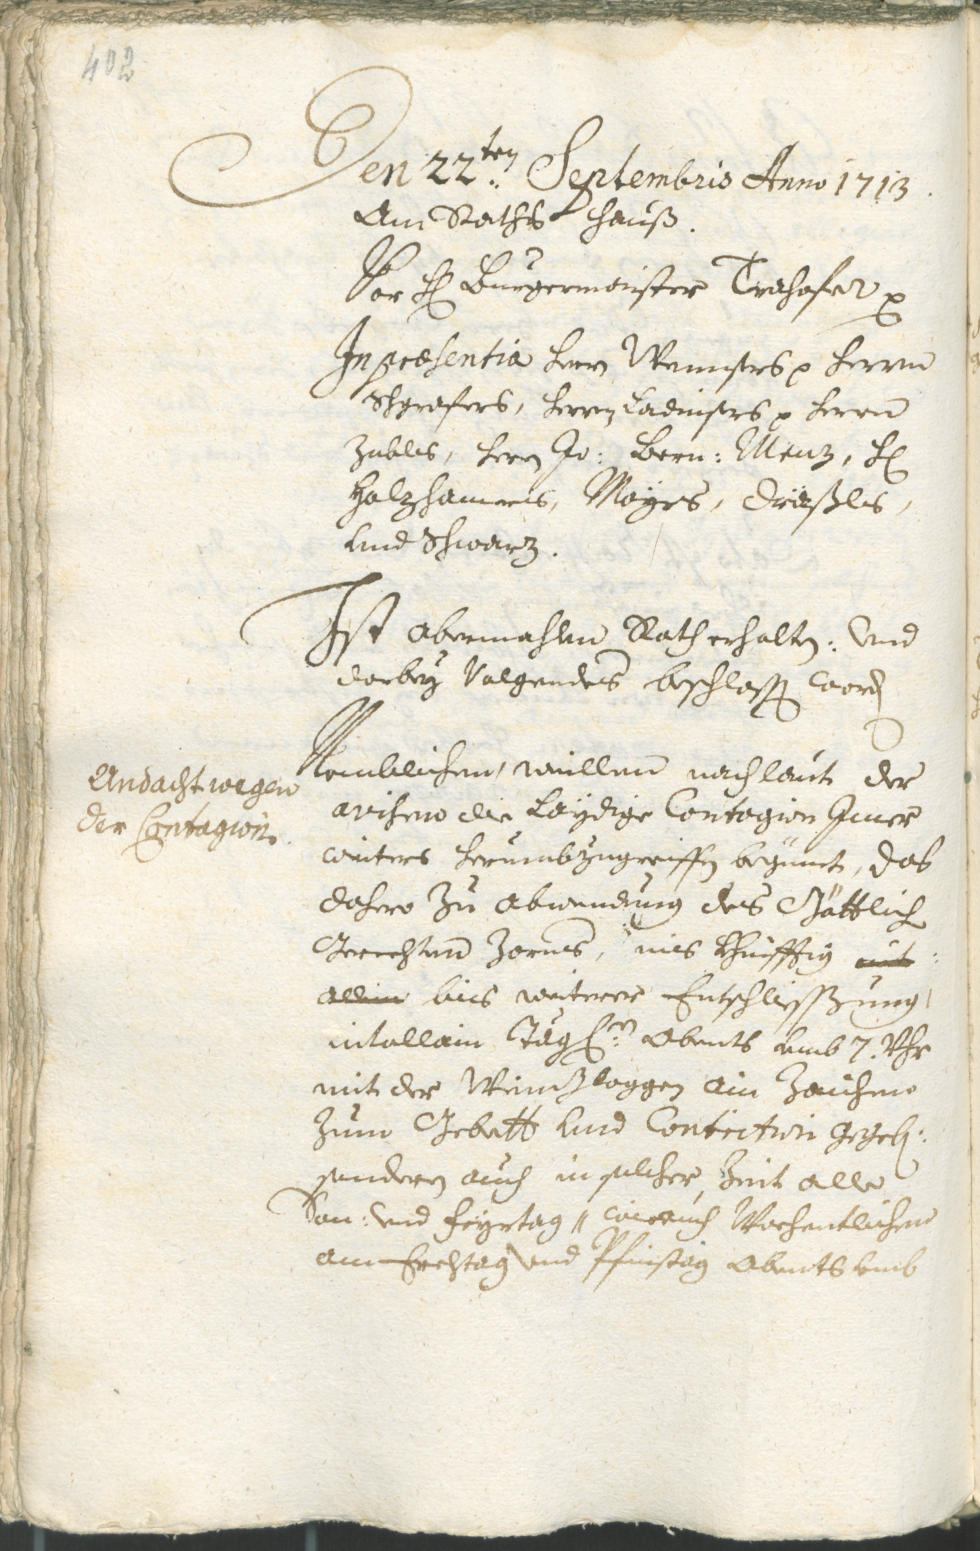 402
Den 22.ten Septembris Anno 1713.
Am Raths hauß.
Vor H Burgermaister Trahofer p
In præsentia herrn Wenisers p herrn
Schgrafers, herrn Ladinsers p herrn
Zables, herrn Jo: Bern: Menz, H
Holzhamers, Mayrs, Dräxls,
und Schwarz.
Ist abermahlen Rath erhalten: und
darbey Volgendes beschlossen word
Andacht wegen
der Contagion.
Nemblichen, weillen nach laut der
avisen die Laydige Contagion Jmer
weiters herumbzugreiffen begünnt, das
dahero Zu abwendung des Göttlich
Gerechten Zorns, nit khünfftig mit
allein bis weiterer Entschliessung
in allain Tägl: Abents umb 7. Uhr
mit der Weinzloggen ain Zaichen
Zum Gebett und Contrition gegeb:
sondern auch in solcher Zeit alle
Son: und feyrtag // wie auch Wochentlichen
am Erchtag und Pfinstag Abents umb